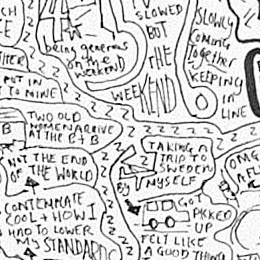 being generous
on the
weekend
SLOWED
BUT
THE
WEEKEND
SLOWLY
coming
together
KEEPING
IN
LINE
PUT IN
TO MINE
B
TWO OLD
WOMEN ARRIVE
AT THE B+B
NOT THE END
OF THE WORLD
TAKING A
TRIP TO
SWEDEN
BY MYSELF
OMG
CONTEMPLATE
COOL + HOW I
HAD TO LOWER
MY STANDARDS
GOT
PICKED
UP
FELT LIKE
A GOOD THING